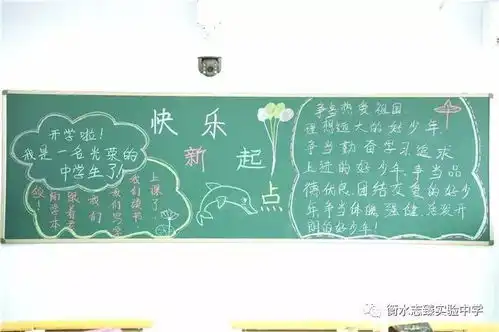 开学啦！
我是一名光荣的
中学生了！
上课了，
我们读书
我们
快乐
新起
点
争当热爱祖国
理想远大的好少年
争当勤奋学习追求
上进的好少年争当品
德优良团结友爱的好少
年争当体魄强健、活泼开
朗的好少年！
衡水志臻实验中学